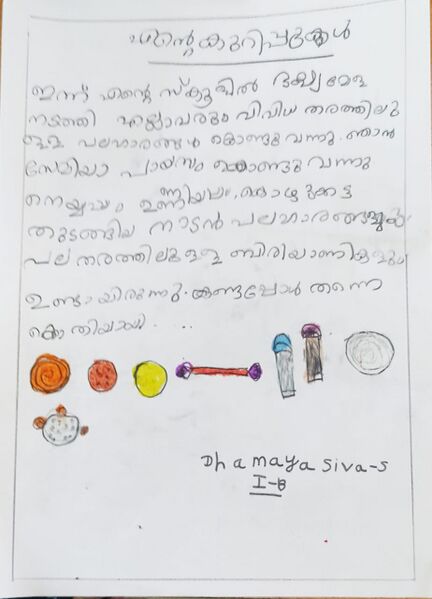 എന്റെ കുറിപ്പുകൾ
ഇന്ന് എന്റെ സ്കൂളിൽ ഭക്ഷ്യമേള
നടത്തി എല്ലാവരും വിവിധ തരത്തിലു
ള്ള പലഹാരങ്ങൾ കൊണ്ടുവന്നു. ഞാൻ
സേമിയാ പായസം കൊണ്ടുവന്നു
നെയ്യപ്പം ഉണ്ണിയപ്പം, കൊഴുക്കട്ട
തുടങ്ങിയ നാടൻ പലഹാരങ്ങളും
പല തരത്തിലുള്ള ബിരിയാണികളും
ഉണ്ടായിരുന്നു. കണ്ടപ്പോൾ തന്നെ
കൊതിയായി. . .
Dhamaya Siva-S
I-B